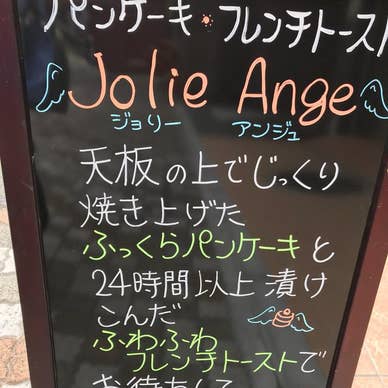 パンケーキ・フレンチトースト
Jolie Ange
ジョリー アンジュ
天板の上でじっくり
焼き上げた
ふっくらパンケーキと
24時間以上漬け
こんだ
ふわふわ
フレンチトーストで
お待ちして